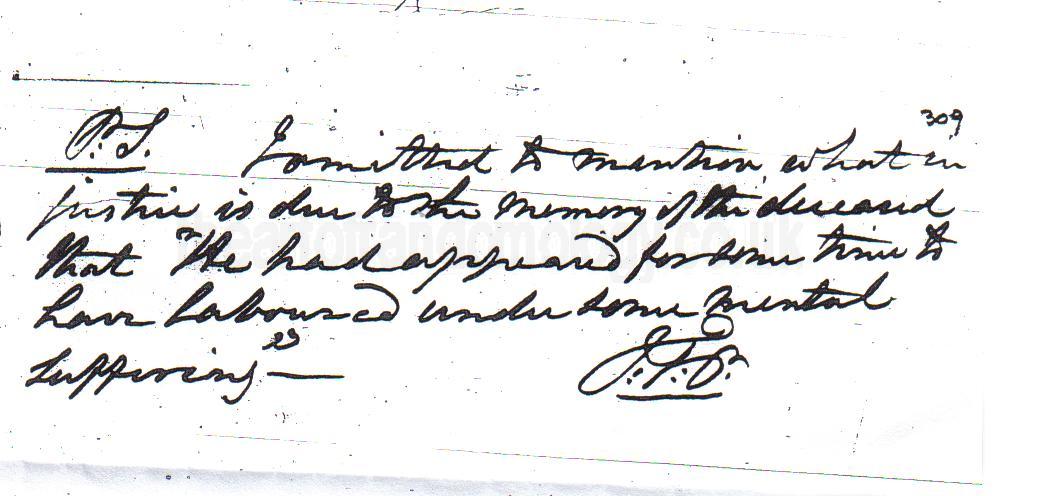 309
P.S. I omitted to mention, what in
justice is due to the memory of the deceased
that "He had appeared for some time to
have laboured under some mental
suffering" —
J.T.B.